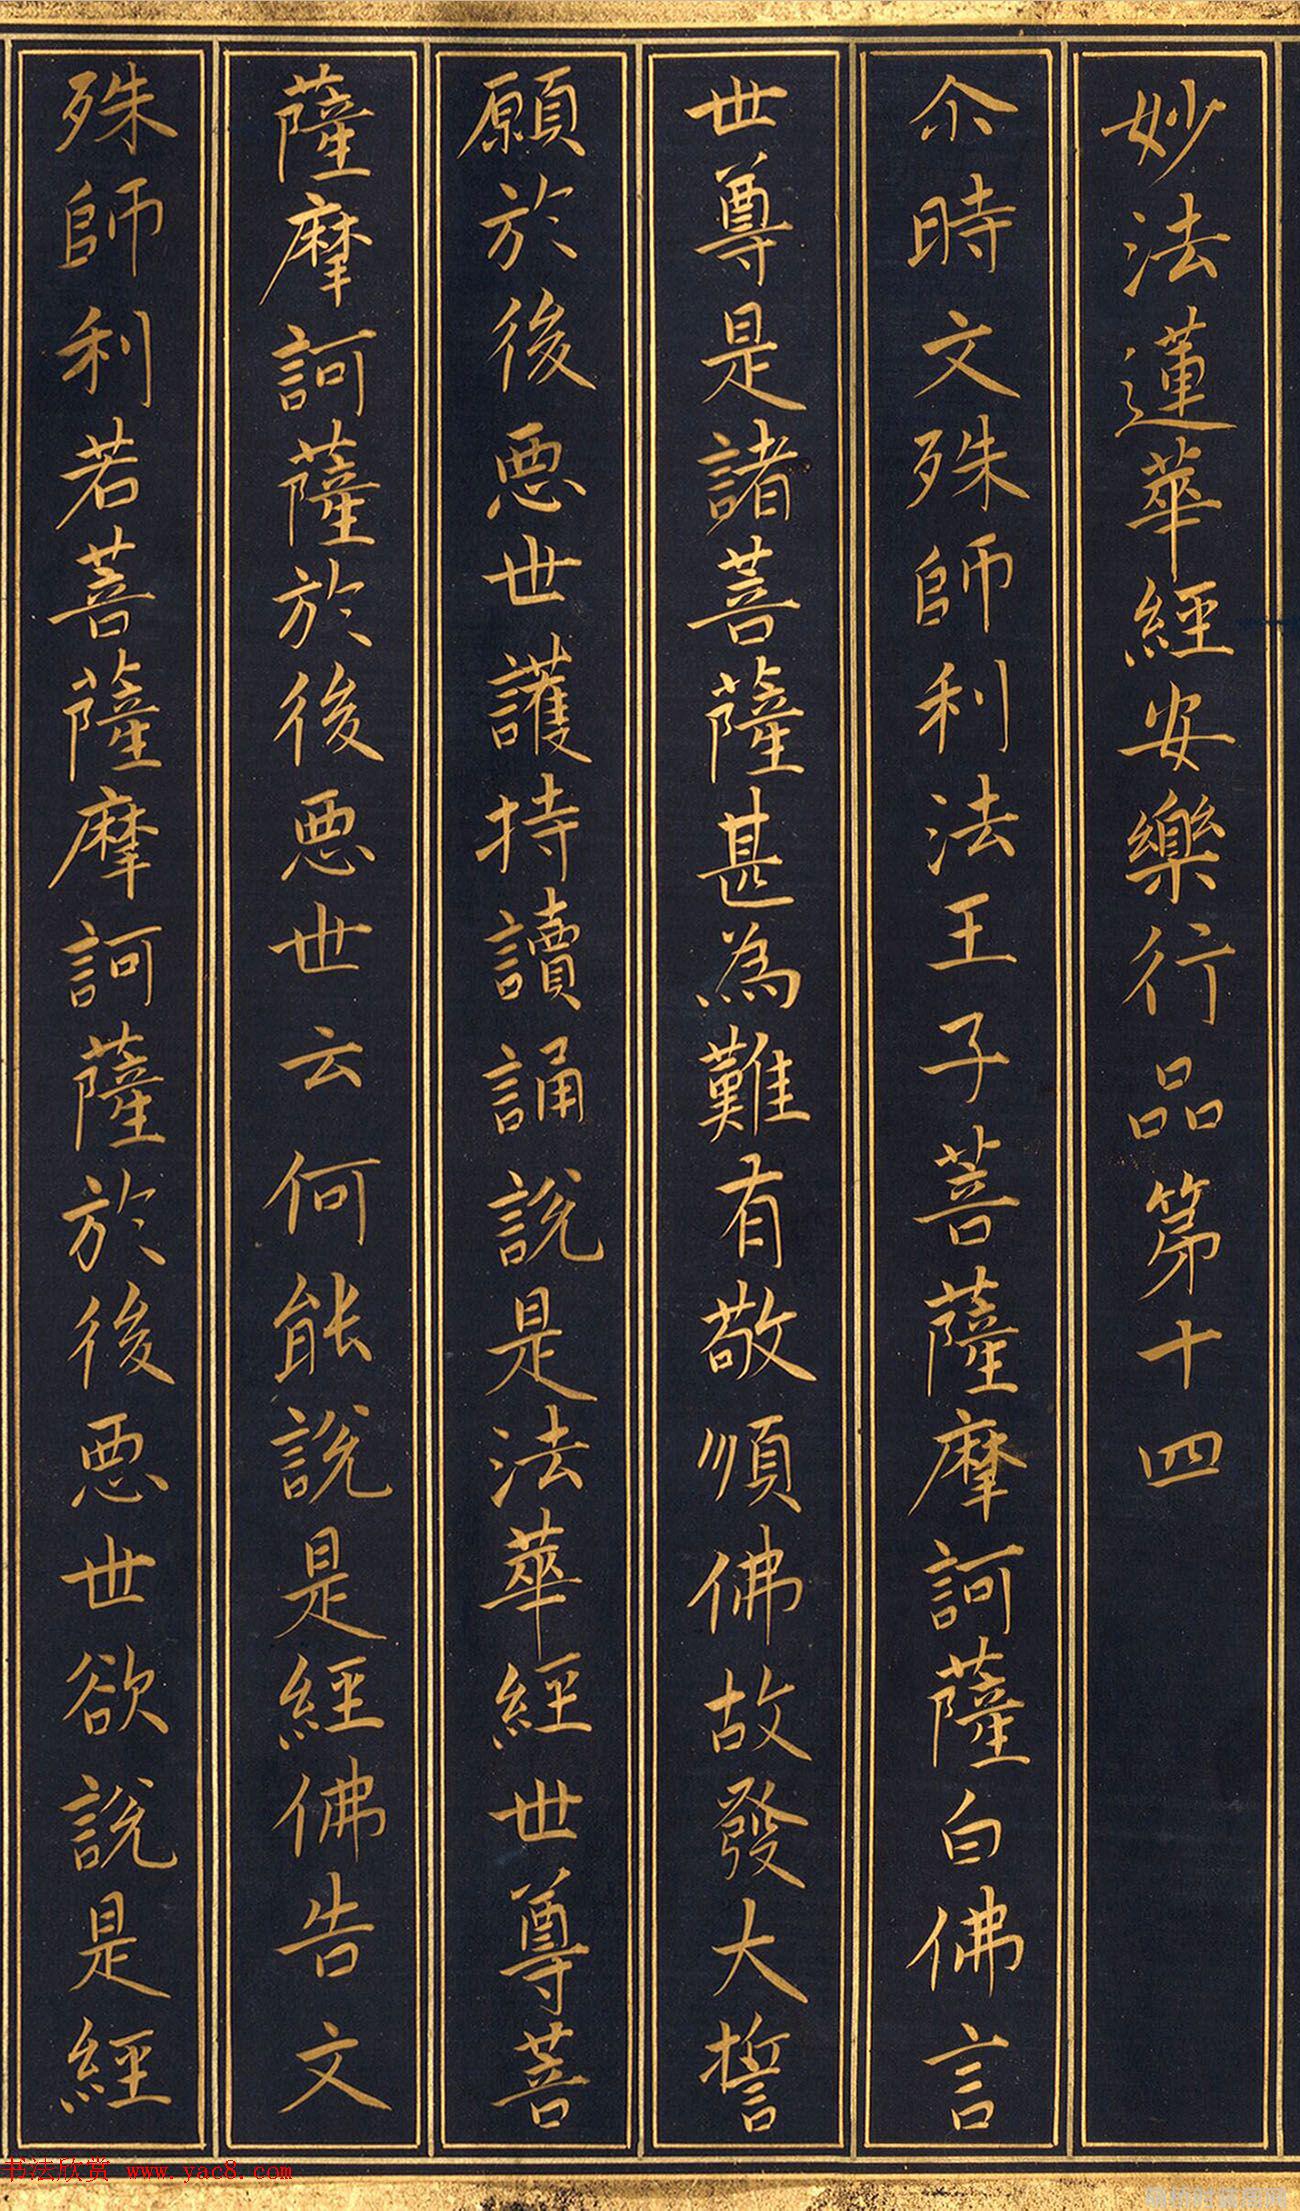 妙法蓮華經安樂行品第十四
尒時文殊師利法王子菩薩摩訶薩白佛言
世尊是諸菩薩甚為難有敬順佛故發大誓
願於後悪世護持讀誦說是法華經世尊菩
薩摩訶薩於後悪世云何能說是經佛告文
殊師利若菩薩摩訶薩於後悪世欲說是經
书法欣赏 www.yac8.com